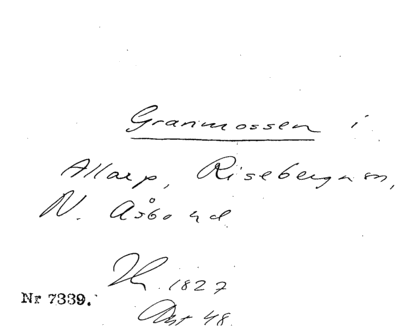 Granmossen i
Allarp, Riseberga sn,
N. Åsbo hd.
1827
Nr 7339.
48.